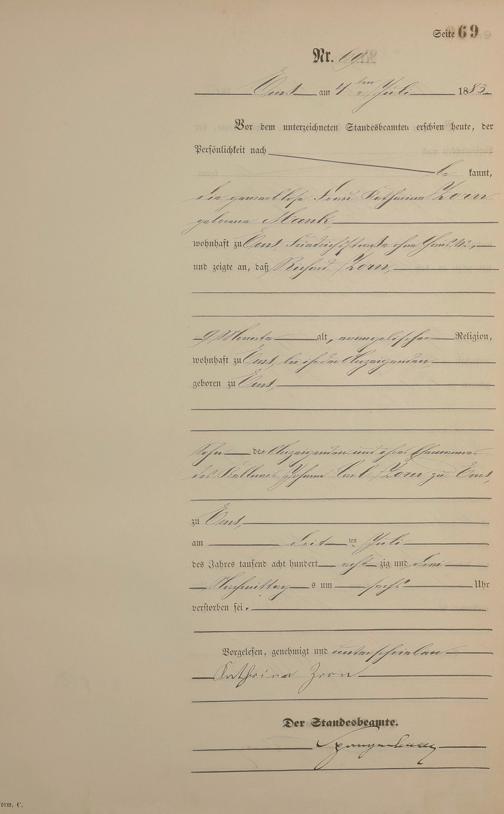 Seite 69
Nr.
Ems am 4ten Juli 1883
Vor dem unterzeichneten Standesbeamten erschien heute, der
Persönlichkeit nach
be kannt,
die gewerblose Frau Katharina Zorn
geborene
wohnhaft zu Ems
und zeigte an, daß Richard Zorn,
9 Monate alt, evangelischer Religion,
wohnhaft zu Ems, bei der Anzeigenden
geboren zu Ems,
Sohn der Anzeigenden und ihres Ehemannes
des Kellners Johann Carl Zorn zu Ems,
zu Ems,
am ten Juli
des Jahres tausend acht hundert acht zig und drei
Nachmittags um sechs Uhr
verstorben sei.
Vorgelesen, genehmigt und unterschrieben
Katharina Zorn
Der Standesbeamte.